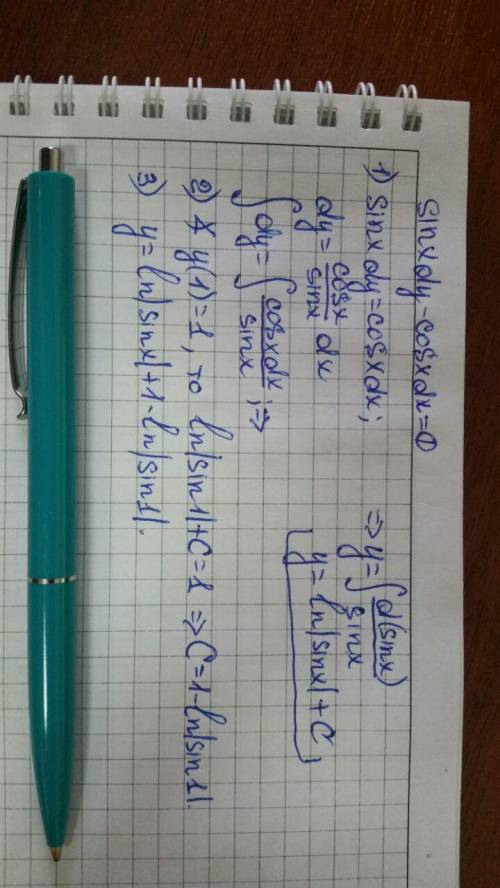 sinx dy - cosx dx = 0
1) sinx dy = cosx dx;
dy = cosx/sinx dx
∫dy = ∫ cosx dx/sinx; ⇒
⇒ y = ∫ d(sinx)/sinx
y = ln|sinx| + C,
2) y(1) = 1, то ln|sin1| + C = 1 ⇒ C = 1 - ln|sin1|.
3) y = ln|sinx| + 1 - ln|sin1|.